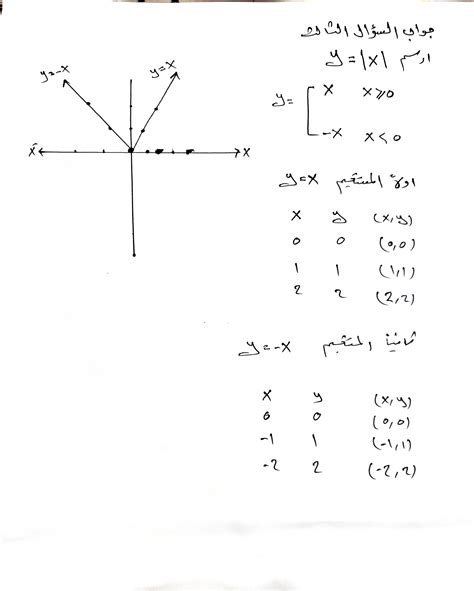 جواب السؤال الثالث
ارسم y=|x|
y= x x≥0
-x x<0
y=-x y=x
x́ x
اولاً المستقيم y=x
x y (x,y)
0 0 (0,0)
1 1 (1,1)
2 2 (2,2)
ثانياً المستقيم y=-x
x y (x,y)
0 0 (0,0)
-1 1 (-1,1)
-2 2 (-2,2)